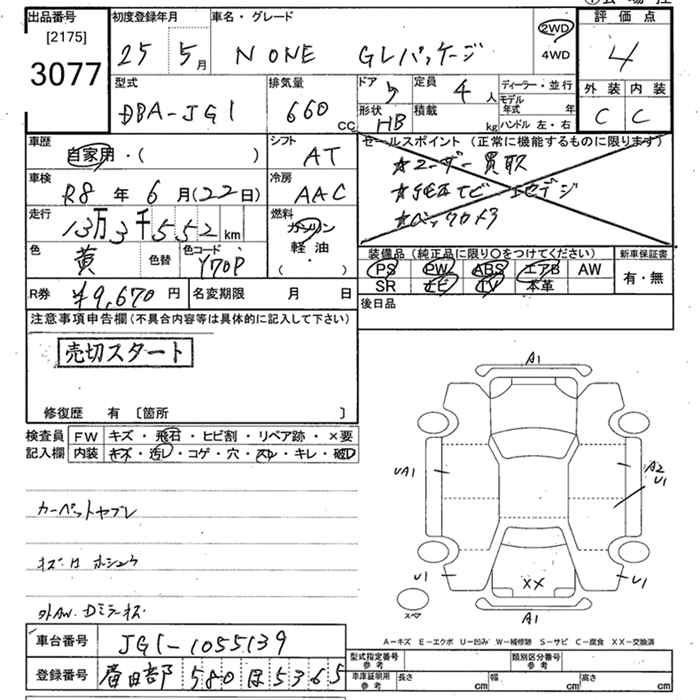 出品番号 [2175] 3077
初度登録年月 25 5月
車名・グレード N ONE GLパッケージ
2WD
4WD
評価点 4
外装 内装
C C
型式 DBA-JG1
排気量 660 CC
ドア 5 定員 4人
形状 HB 積載 kg
ディーラー・並行
モデル年式 年
ハンドル 左・右
車歴 自家用・( )
シフト AT
セールスポイント (正常に機能するものに限ります)
★ユーザー買取
★純正ナビ 地デジ
★バックカメラ
車検 R8年 6月(22日)
冷房 AAC
走行 13万3千552 km
燃料 ガソリン
軽油
( ・ )
色 黄 色替 色コード Y70P
装備品 (純正品に限り〇をつけてください)
PS PW ABS エアB AW
SR ナビ TV 本革
新車保証書
有・無
R券 ¥9,670円 名変期限 月 日
後日品
注意事項申告欄 (不具合内容等は具体的に記入して下さい)
売切スタート
修復歴 有 〔箇所 〕
検査員 FW キズ・飛石・ヒビ割・リペア跡・×要
記入欄 内装 キズ・汚レ・コゲ・穴・スレ・キレ・破レ
カーペットヤブレ
キズ・凹 ホシュウ
外AW. Dミラーキズ
A1
UA1
A2
U1
U1
XX
U1
スペア
A1
A-キズ E-エクボ U-凹ミ W-補修跡 S-サビ C-腐食 XX-交換済
車台番号 JG1-1055139
型式指定番号 参考
類別区分番号 参考
登録番号 580 ほ 5365
車庫証明用 参考 長さ cm 幅 cm 高さ cm